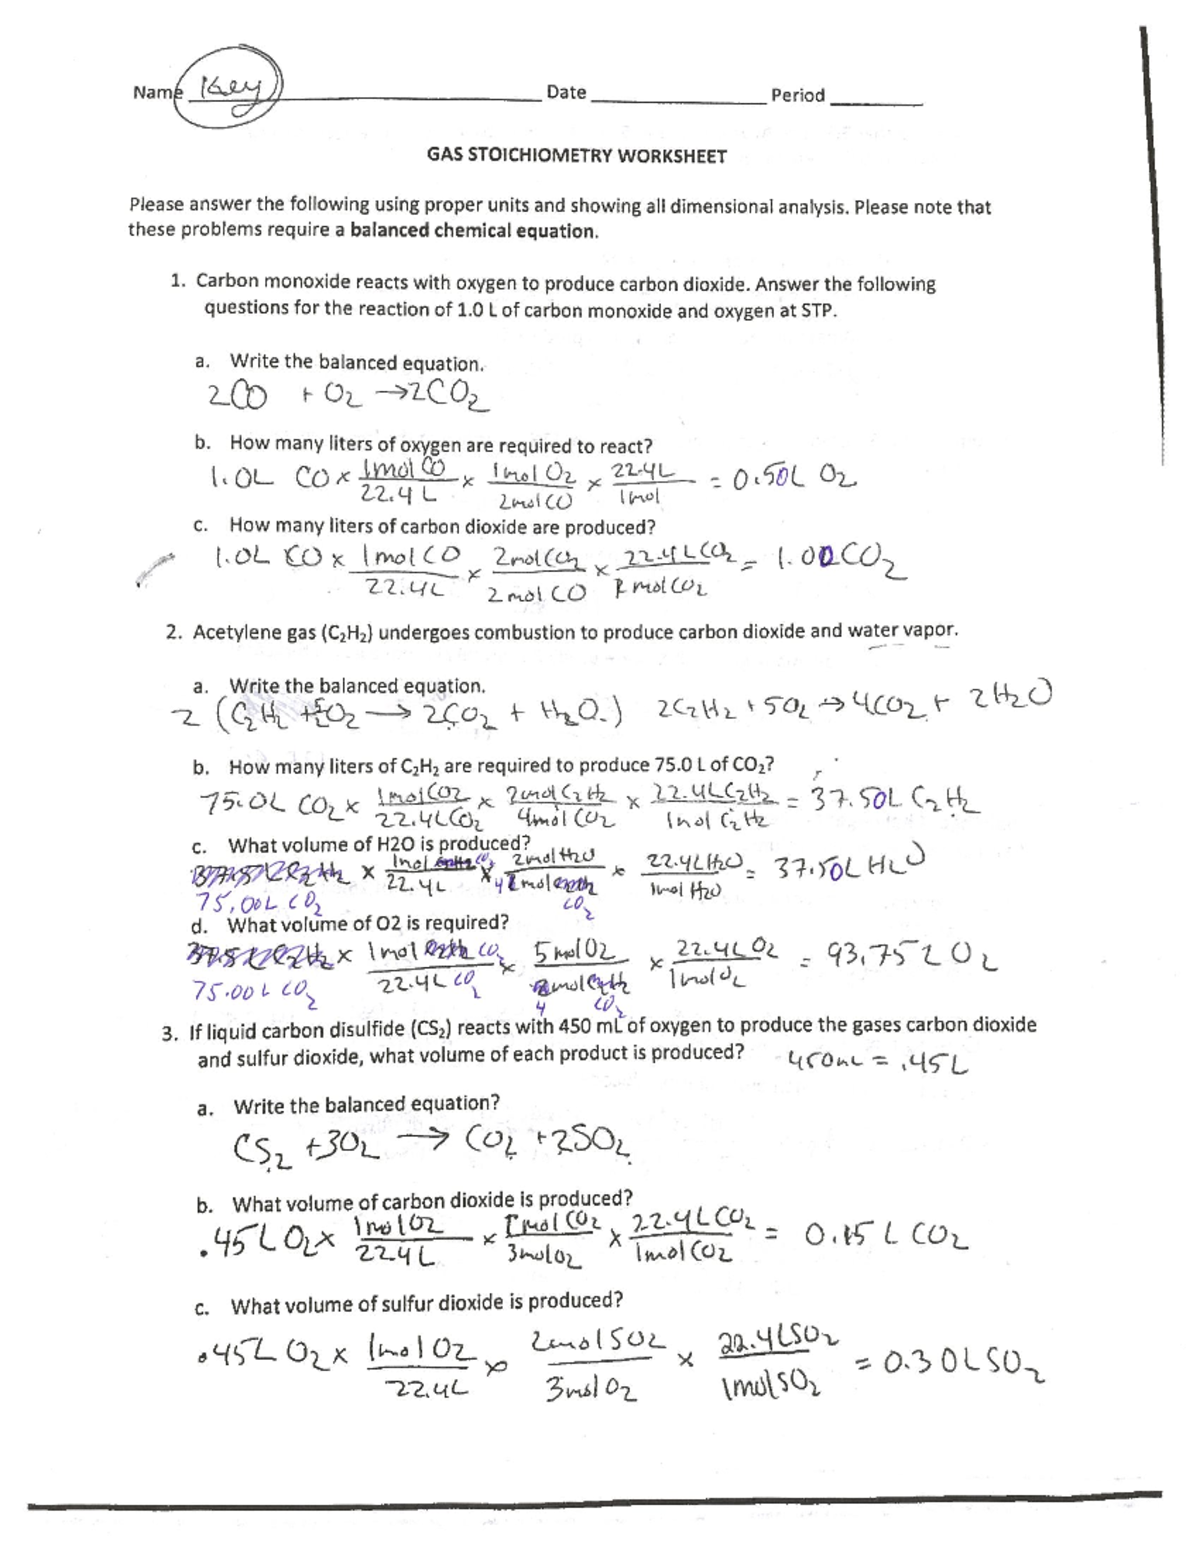 Name Key Date Period
GAS STOICHIOMETRY WORKSHEET
Please answer the following using proper units and showing all dimensional analysis. Please note that
these problems require a balanced chemical equation.
1. Carbon monoxide reacts with oxygen to produce carbon dioxide. Answer the following
questions for the reaction of 1.0 L of carbon monoxide and oxygen at STP.
a. Write the balanced equation.
2CO + O2 →2CO2
b. How many liters of oxygen are required to react?
1.0L CO x 1mol CO x 1mol O2 x 22.4L = 0.50L O2
22.4 L 2mol CO 1mol
c. How many liters of carbon dioxide are produced?
1.0L CO x 1mol CO x 2mol CO2 x 22.4L CO2 = 1.00 CO2
22.4L 2mol CO mol CO2
2. Acetylene gas (C₂H₂) undergoes combustion to produce carbon dioxide and water vapor.
a. Write the balanced equation.
2 (C2H2 + 5/2O2 → 2CO2 + H2O) 2C2H2 + 5O2 → 4CO2 + 2H2O
b. How many liters of C₂H₂ are required to produce 75.0 L of CO₂?
75.0L CO2 x 1mol CO2 x 2mol C2H2 x 22.4L C2H2 = 37.50L C2H2
22.4L CO2 4mol CO2 1mol C2H2
c. What volume of H2O is produced?
37.5L C2H2 x 1mol CO2 x 2mol H2O x 22.4L H2O = 37.50L H2O
75.00L CO2 22.4L 4 mol CO2 1mol H2O
d. What volume of O2 is required?
37.5L C2H2 x 1mol CO2 x 5mol O2 x 22.4L O2 = 93.75L O2
75.00L CO2 22.4L CO2 4 mol CO2 1mol O2
3. If liquid carbon disulfide (CS₂) reacts with 450 mL of oxygen to produce the gases carbon dioxide
and sulfur dioxide, what volume of each product is produced? 450mL = .45L
a. Write the balanced equation?
CS2 +3O2 → CO2 +2SO2
b. What volume of carbon dioxide is produced?
.45L O2 x 1mol O2 x 1mol CO2 x 22.4L CO2 = 0.15 L CO2
22.4L 3mol O2 1mol CO2
c. What volume of sulfur dioxide is produced?
.45L O2 x 1mol O2 x 2mol SO2 x 22.4L SO2 = 0.30L SO2
22.4L 3mol O2 1mol SO2